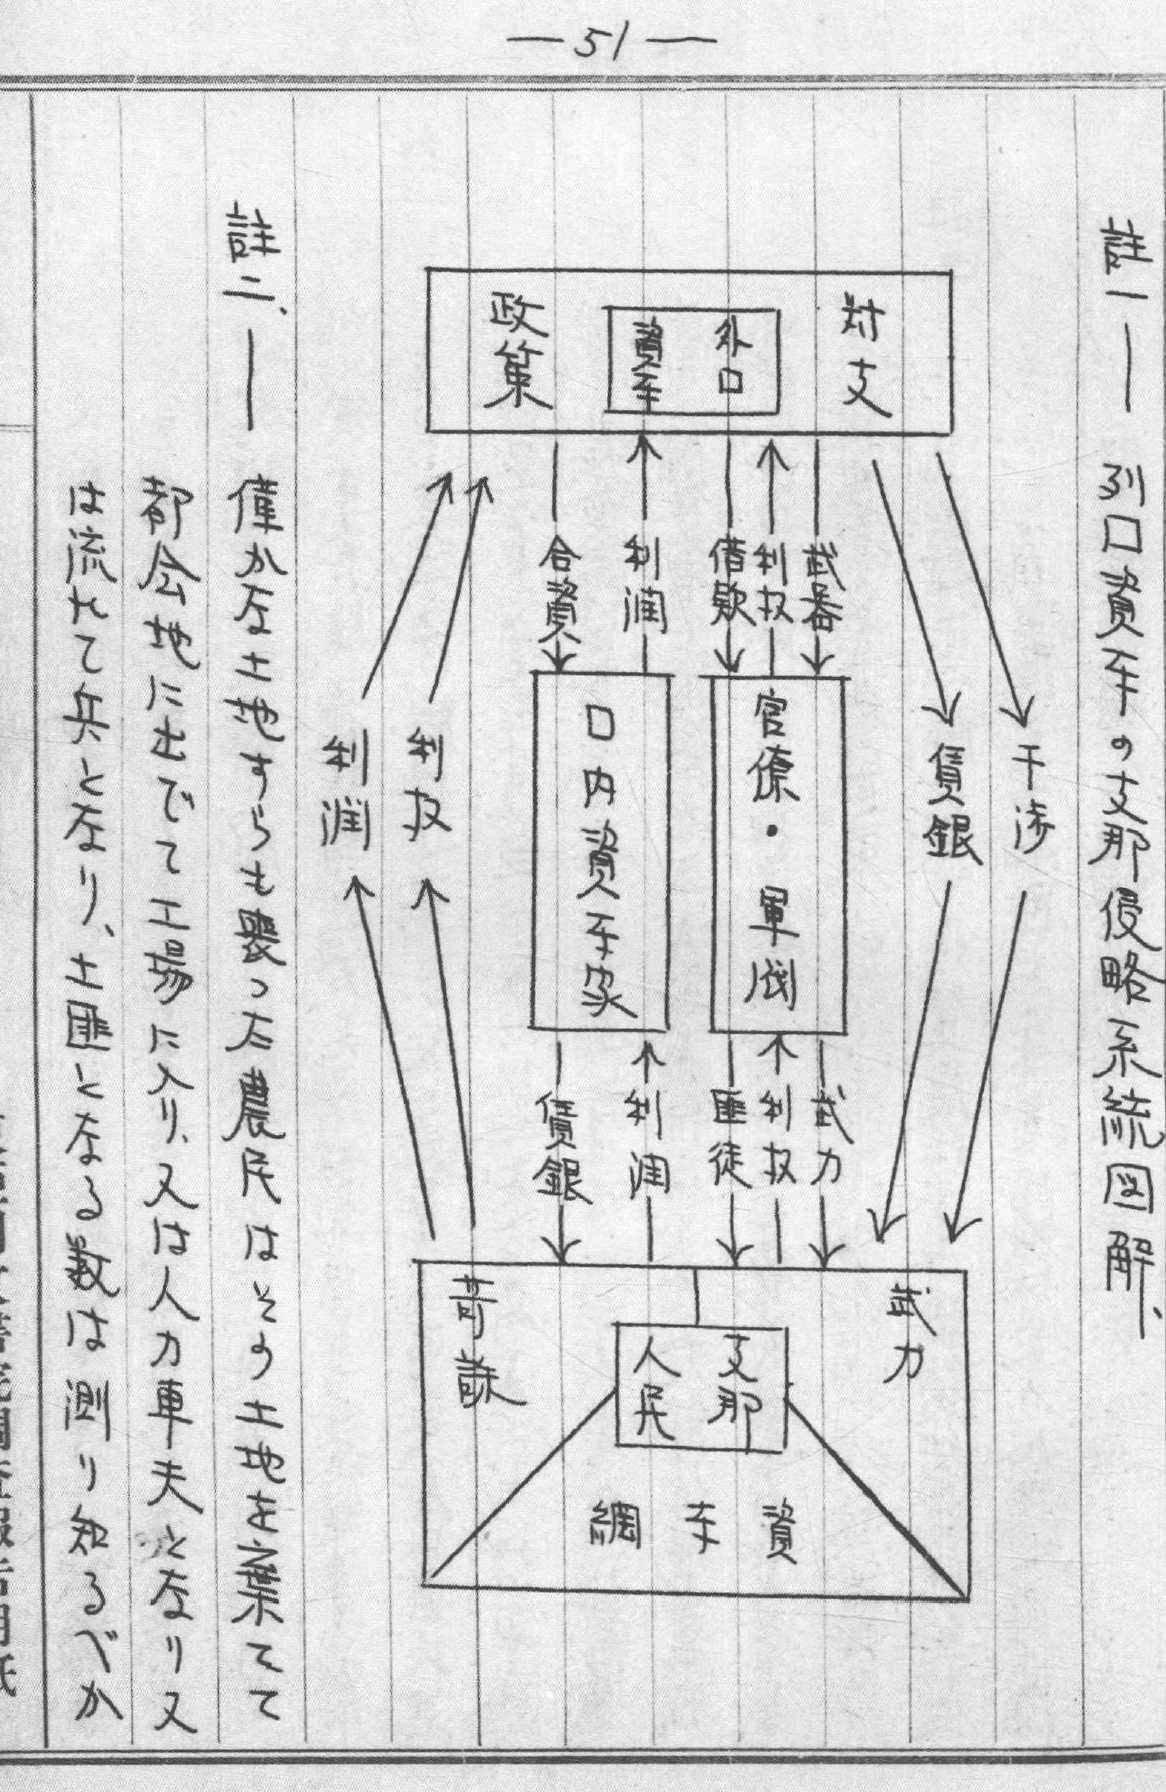 —51—
註一——列口資本の支那侵略系統図解、
対支
政策
外口
資本
干渉
賃銀
武器
利权
借款
利潤
合資
利权
利潤
官僚・軍閥
口内資本家
武力
利权
匪徒
利潤
賃銀
武力
支那
人民
資本網
註二、——僅かな土地すらも喪った農民はその土地を棄てて
都会地に出でて工場に入り、又は人力車夫となり又
は流れて兵となり、土匪となる数は測り知るべか